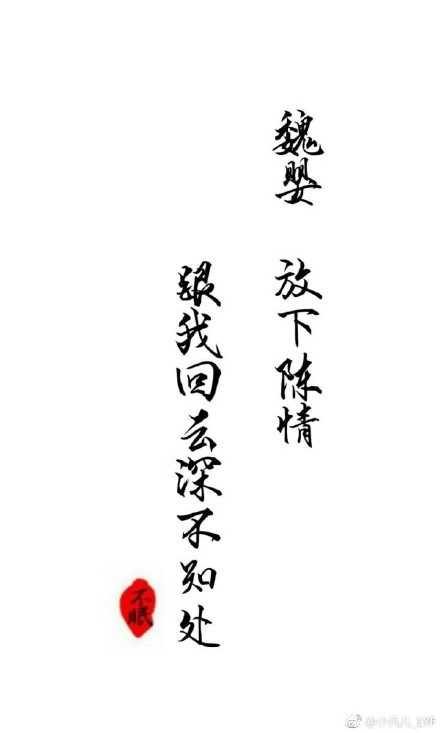 魏婴 放下陈情
跟我回云深不知处
不眠
@小凡儿_